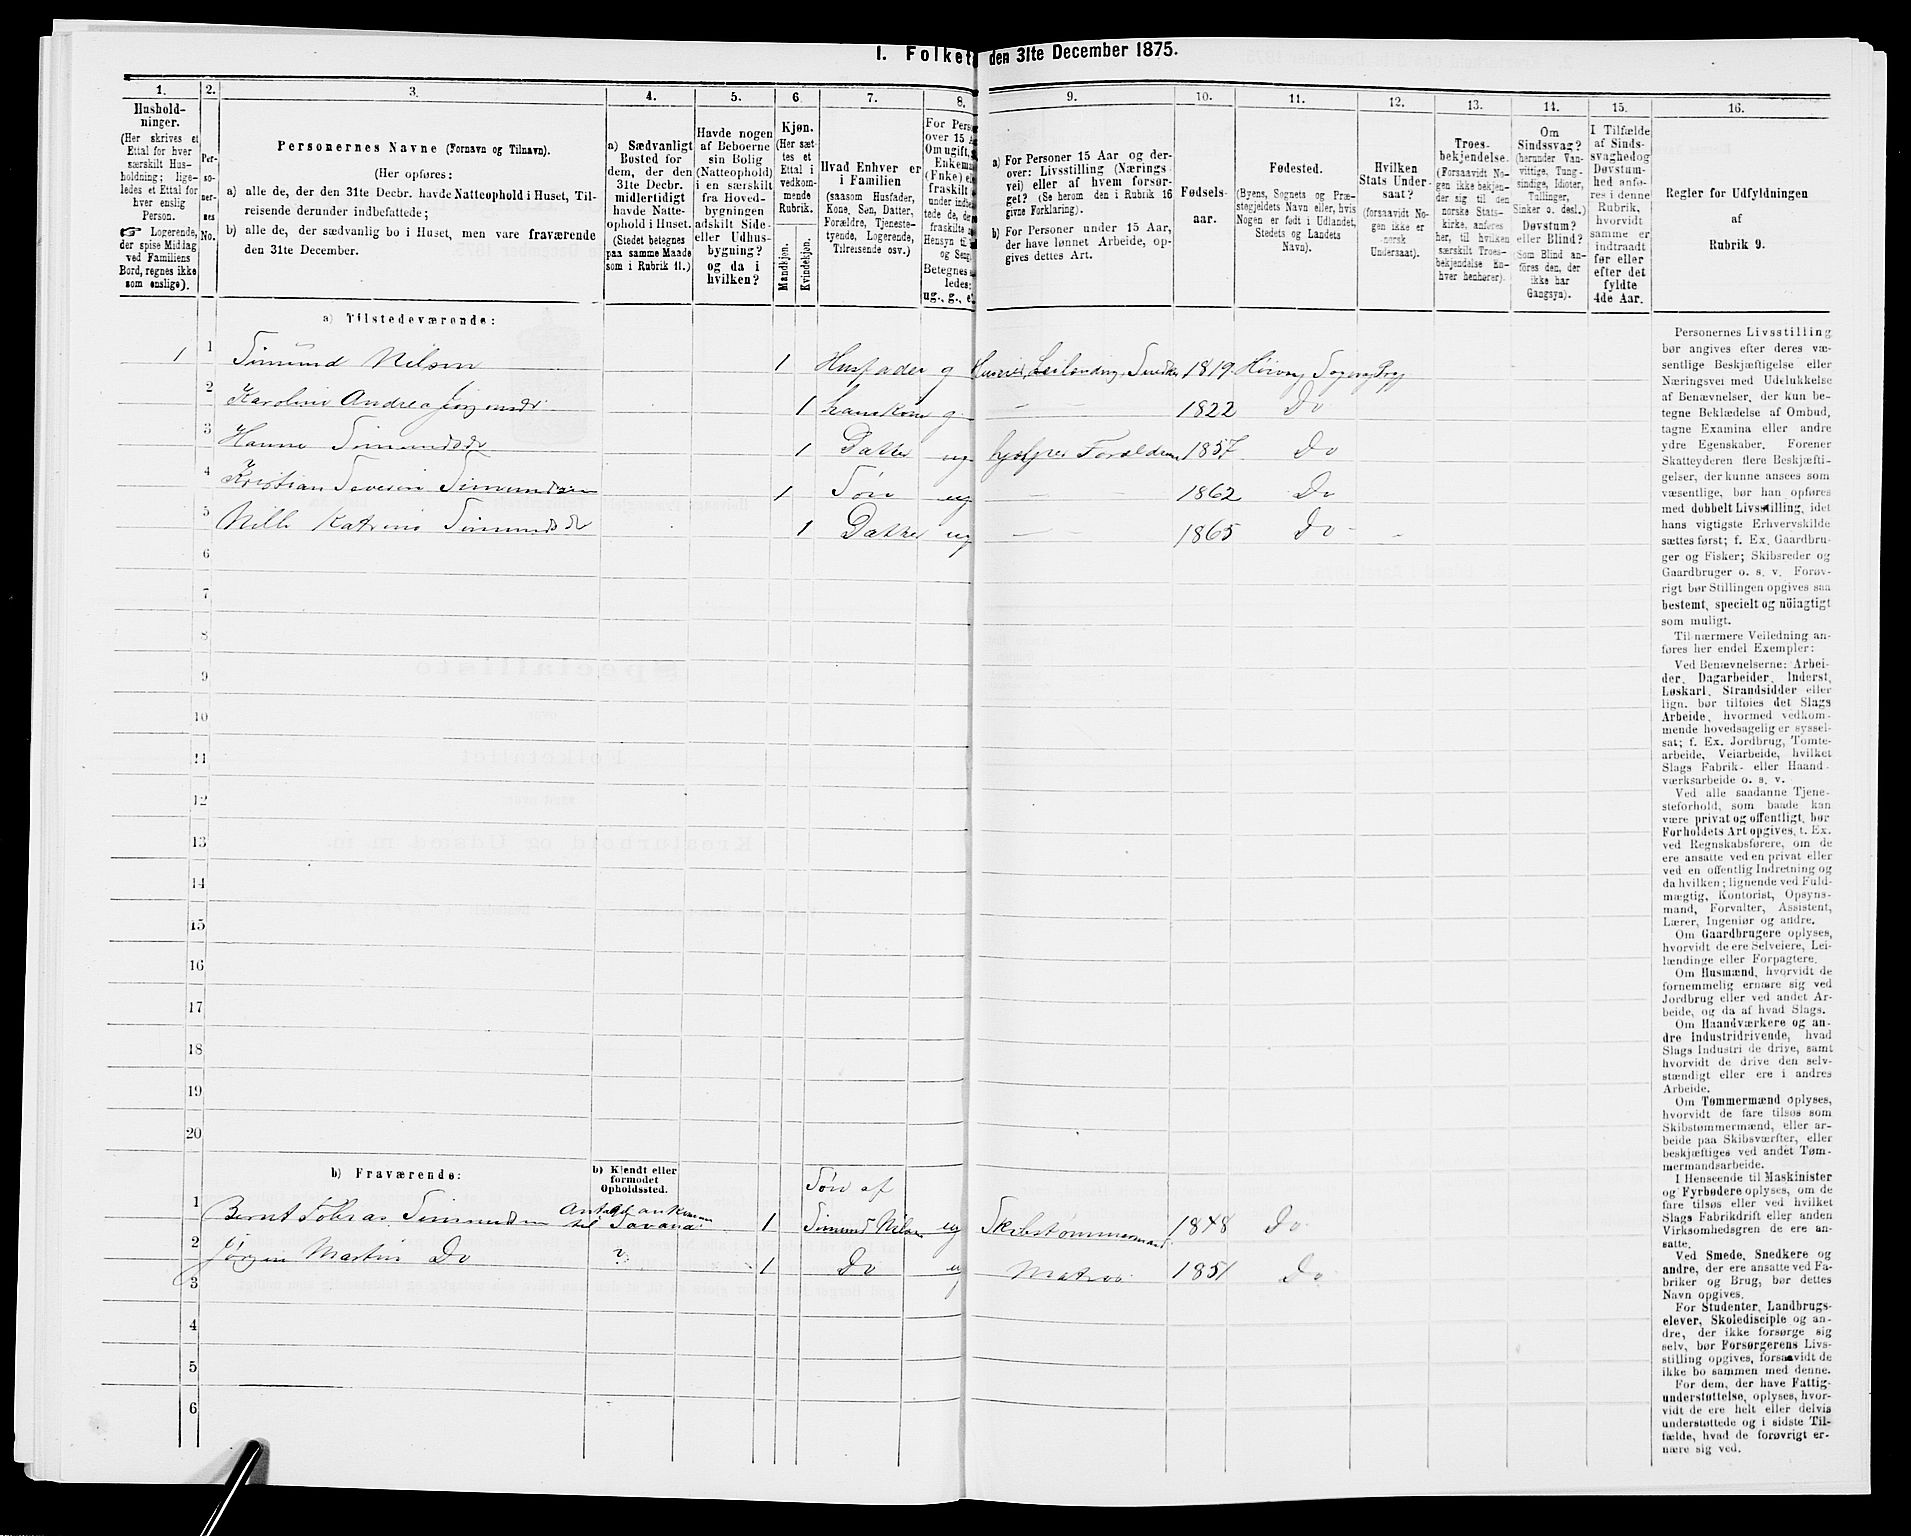 I. Folket den 31te December 1875.
1.
Hushold-
ninger.
(Her skrives et
Ettal for hver
særskilt Hus-
holdning; lige-
ledes et Ettal for
hver enslig
Person.
☞ Logerende,
der spise Middag
ved Familiens
Bord, regnes ikke
som enslige).
2.
Per-
so-
ner-
nes
No.
3.
Personernes Navne (Fornavn og Tilnavn).
(Her opføres:
a) alle de, der den 31te Decbr. havde Natteophold i Huset, Til-
reisende derunder indbefattede;
b) alle de, der sædvanlig bo i Huset, men vare fraværende
den 31te December.
4.
a) Sædvanligt
Bosted for
dem, der den
31te Decbr.
midlertidigt
havde Natte-
ophold i Huset.
(Stedet betegnes
paa samme Maade
som i Rubrik 11.)
5.
Havde nogen
af Beboerne
sin Bolig
(Natteophold)
i en særskilt
fra Hoved-
bygningen
adskilt Side-
eller Udhus-
bygning?
og da i
hvilken?
6.
Kjøn.
(Her sæt-
tes et
Ettal i
vedkom-
mende
Rubrik.
Mandkjøn.
Kvindekjøn.
7.
Hvad Enhver er
i Familien
(saasom Husfader,
Kone, Søn, Datter,
Forældre, Tjeneste-
tyende, Logerende,
Tilreisende osv.)
8.
For Pers
over 15 A
Om ugift,
Enkema
(Enke) e
fraskilt
under indbe
tede de, de
fraskilte
Hensyn ti
og Seng
Betegnes
ledes:
ug., g., e
9.
a) For Personer 15 Aar og der-
over: Livsstilling (Nærings-
vei) eller af hvem forsør-
get? (Se herom den i Rubrik 16
givne Forklaring).
b) For Personer under 15 Aar,
der have lønnet Arbeide, op-
gives dettes Art.
10.
Fødsels-
aar.
11.
Fødested.
(Byens, Sognets og Præ-
stegjeldets Navn eller, hvis
Nogen er født i Udlandet,
Stedets og Landets
Navn).
12.
Hvilken
Stats Under-
saat?
(forsaavidt No-
gen ikke er
norsk
Undersaat).
13.
Troes-
bekjendelse.
(Forsaavidt No-
gen ikke bekjen-
der sig til den
norske Stats-
kirke, anføres
her, til hvilken
særskilt Troes-
bekjendelse En-
hver henhører).
14.
Om
Sindssvag?
(herunder Van-
vittige, Tung-
sindige, Idioter,
Tullinger,
Sinker o. desl.)
Døvstum?
eller Blind?
(Som Blind an-
føres den, der
ikke har
Gangsyn).
15.
I Tilfælde
af Sinds-
svaghed og
Døvstum-
hed anfø-
res i denne
Rubrik,
hvorvidt
samme er
indtraadt
før eller
efter det
fyldte
4de Aar.
16.
Regler for Udfyldningen
af
Rubrik 9.
a) Tilstedeværende:
1 1 Simund Nilsen 1 Husfader g Leilænding, Snedker 1819
2 Karoline Andrea Jørgensdr 1 hans Kone g - 1822 Do
3 Hanne Simundsdr 1 Datter ug hjelper Forældrene 1857 Do
4 Kristian Severin Simundsen 1 Søn ug - 1862 Do
5 Nille Katrine Simundsdr 1 Datter ug - 1865 Do -
6
7
8
9
10
11
12
13
14
15
16
17
18
19
20
b) Fraværende:
b) Kjendt eller
formodet
Opholdssted.
1 Bernt Tobias Simundsen Antagl ankommen til Savana 1 Søn af Simund Nilsen ug Skibstømmermand 1848 Do
2 Jørgen Martin Do ? 1 Do ug Matros 1851 Do
3
4
5
6
Personernes Livsstilling
bør angives efter deres væ-
sentlige Beskjæftigelse eller
Næringsvei med Udelukkelse
af Benævnelser, der kun be-
tegne Beklædelse af Ombud,
tagne Examina eller andre
ydre Egenskaber. Forener
Skatteyderen flere Beskjæfti-
gelser, der kunne ansees som
væsentlige, bør han opføres
med dobbelt Livsstilling, idet
hans vigtigste Erhvervskilde
sættes først; f. Ex. Gaardbru-
ger og Fisker; Skibsreder og
Gaardbruger o. s. v. Forøv-
rigt bør Stillingen opgives saa
bestemt, specielt og nöiagtigt
som muligt.
Til nærmere Veiledning an-
føres her endel Exempler:
Ved Benævnelserne: Arbei-
der, Dagarbeider, Inderst,
Løskarl, Strandsidder eller
lign. bør tilføies det Slags
Arbeide, hvormed vedkom-
mende hovedsagelig er syssel-
sat; f. Ex. Jordbrug, Tomte-
arbeide, Veiarbeide, hvilket
Slags Fabrik- eller Haand-
værksarbeide o. s. v.
Ved alle saadanne Tjene-
steforhold, som baade kan
være privat og offentligt, bør
Forholdets Art opgives, t. Ex.
ved Regnskabsførere, om de
ere ansatte ved en privat eller
ved en offentlig Indretning og
da hvilken; lignende ved Fuld-
mægtig, Kontorist, Opsyns-
mand, Forvalter, Assistent,
Lærer, Ingeniør og andre.
Om Gaardbrugere oplyses,
hvorvidt de ere Selveiere, Lei-
lændinge eller Forpagtere.
Om Husmænd, hvorvidt de
fornemmelig ernære sig ved
Jordbrug eller ved andet Ar-
beide, og da af hvad Slags.
Om Haandværkere og an-
dre Industridrivende, hvad
Slags Industri de drive, samt
hvorvidt de drive den selv-
stændigt eller ere i andres
Arbeide.
Om Tømmermænd oplyses,
hvorvidt de fare tilsøs som
Skibstømmermænd, eller ar-
beide paa Skibsværfter, eller
beskjæftiges ved andet Tøm-
mermandsarbeide.
I Henseende til Maskinister
og Fyrbødere oplyses, om de
fare tilsøs eller ved hvilket
Slags Fabrikdrift eller anden
Virksomhedsgren de ere an-
satte.
Ved Smede, Snedkere og
andre, der ere ansatte ved Fa-
briker og Brug, bør dettes
Navn opgives.
For Studenter, Landbrugs-
elever, Skoledisciple og an-
dre, der ikke forsørge sig
selv, bør Forsørgerens Livs-
stilling opgives, forsaavidt de
ikke bo sammen med denne.
For dem, der have Fattig-
understøttelse, oplyses, hvor-
vidt de ere helt eller delvis
understøttede og i sidste Til-
fælde, hvad de forøvrigt er-
nære sig ved.